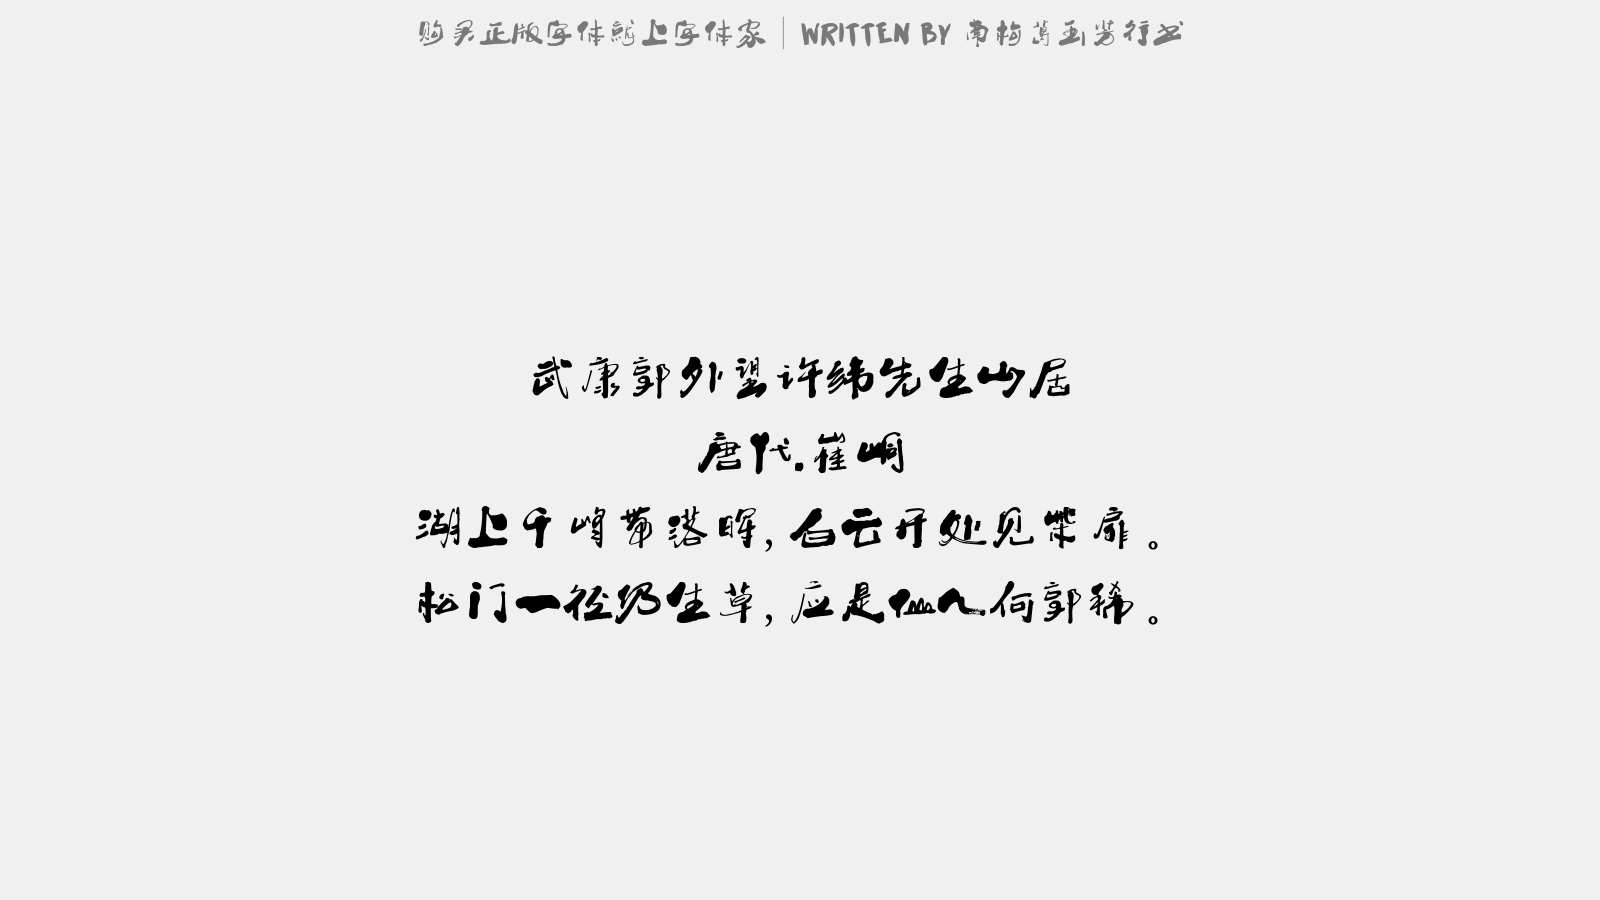 购买正版字体就上字体家 | WRITTEN BY 南梅葛玉芳行书
武康郭外望许纬先生山居
唐代.崔峒
湖上千峰带落晖,白云开处见柴扉。
松门一径仍生草,应是仙人向郭稀。